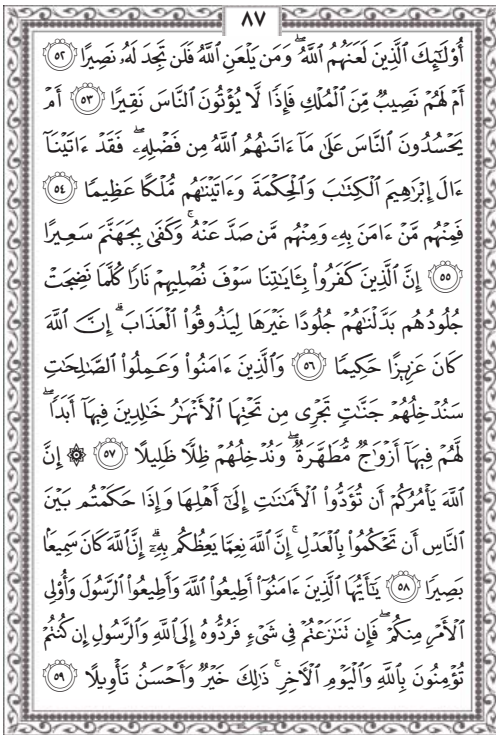 ٨٧
أُوْلَٰٓئِكَ ٱلَّذِينَ لَعَنَهُمُ ٱللَّهُۖ وَمَن يَلْعَنِ ٱللَّهُ فَلَن تَجِدَ لَهُۥ نَصِيرًا ٥٢
أَمْ لَهُمْ نَصِيبٌ مِّنَ ٱلْمُلْكِ فَإِذًا لَّا يُؤْتُونَ ٱلنَّاسَ نَقِيرًا ٥٣ أَمْ
يَحْسُدُونَ ٱلنَّاسَ عَلَىٰ مَآ ءَاتَىٰهُمُ ٱللَّهُ مِن فَضْلِهِۦۖ فَقَدْ ءَاتَيْنَآ
ءَالَ إِبْرَٰهِيمَ ٱلْكِتَٰبَ وَٱلْحِكْمَةَ وَءَاتَيْنَٰهُم مُّلْكًا عَظِيمًا ٥٤
فَمِنْهُم مَّنْ ءَامَنَ بِهِۦ وَمِنْهُم مَّن صَدَّ عَنْهُۚ وَكَفَىٰ بِجَهَنَّمَ سَعِيرًا
٥٥ إِنَّ ٱلَّذِينَ كَفَرُواْ بِـَٔايَٰتِنَا سَوْفَ نُصْلِيهِمْ نَارًا كُلَّمَا نَضِجَتْ
جُلُودُهُم بَدَّلْنَٰهُمْ جُلُودًا غَيْرَهَا لِيَذُوقُواْ ٱلْعَذَابَۗ إِنَّ ٱللَّهَ
كَانَ عَزِيزًا حَكِيمًا ٥٦ وَٱلَّذِينَ ءَامَنُواْ وَعَمِلُواْ ٱلصَّٰلِحَٰتِ
سَنُدْخِلُهُمْ جَنَّٰتٍ تَجْرِى مِن تَحْتِهَا ٱلْأَنْهَٰرُ خَٰلِدِينَ فِيهَآ أَبَدًاۖ
لَّهُمْ فِيهَآ أَزْوَٰجٌ مُّطَهَّرَةٌۖ وَنُدْخِلُهُمْ ظِلًّا ظَلِيلًا ٥٧ ۞ إِنَّ
ٱللَّهَ يَأْمُرُكُمْ أَن تُؤَدُّواْ ٱلْأَمَٰنَٰتِ إِلَىٰٓ أَهْلِهَا وَإِذَا حَكَمْتُم بَيْنَ
ٱلنَّاسِ أَن تَحْكُمُواْ بِٱلْعَدْلِۚ إِنَّ ٱللَّهَ نِعِمَّا يَعِظُكُم بِهِۦٓۗ إِنَّ ٱللَّهَ كَانَ سَمِيعًۢا
بَصِيرًا ٥٨ يَٰٓأَيُّهَا ٱلَّذِينَ ءَامَنُوٓاْ أَطِيعُواْ ٱللَّهَ وَأَطِيعُواْ ٱلرَّسُولَ وَأُوْلِى
ٱلْأَمْرِ مِنكُمْۖ فَإِن تَنَٰزَعْتُمْ فِى شَىْءٍ فَرُدُّوهُ إِلَى ٱللَّهِ وَٱلرَّسُولِ إِن كُنتُمْ
تُؤْمِنُونَ بِٱللَّهِ وَٱلْيَوْمِ ٱلْءَاخِرِۚ ذَٰلِكَ خَيْرٌ وَأَحْسَنُ تَأْوِيلًا ٥٩